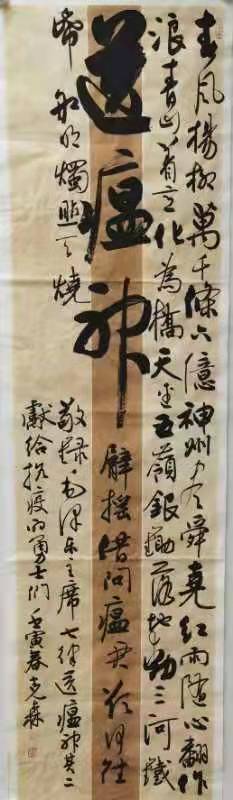 春风楊柳萬千條六億神州尽舜堯紅雨随心翻作
浪青山着意化為橋天连五嶺銀鋤落地动三河鐵
送瘟神
臂摇借问瘟君欲何往
帋船明燭照天燒
敬録毛泽东主席七律送瘟神其二
獻给抗疫的勇士们壬寅春克森